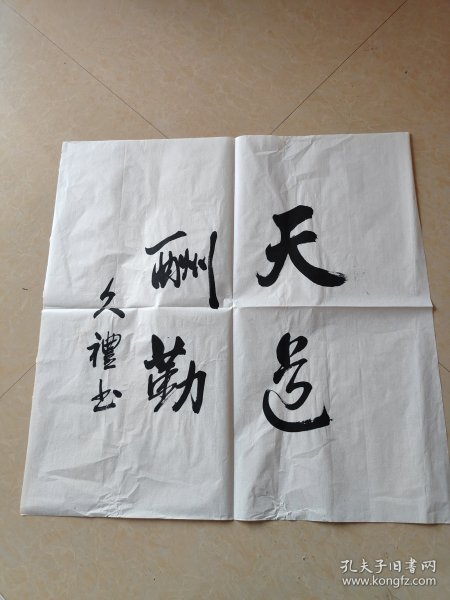 天道
酬勤
久禮书
孔夫子旧书网
www.kongfz.com